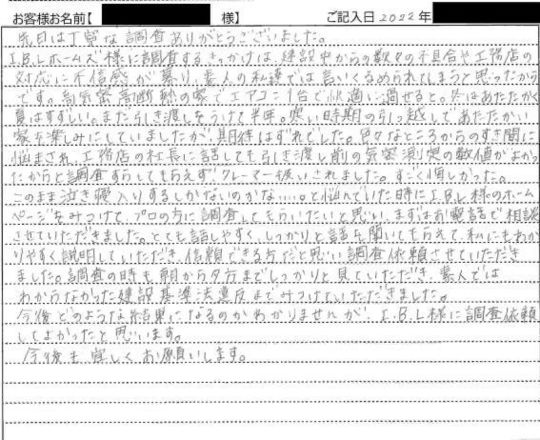 お客様お名前【 様】 ご記入日2022年
先日は丁寧な調査ありがとうございました。
I.B.Lホームズ様に調査するきっかけは、建設中からの数々の不具合や工務店の
対応に不信感が募り、素人の私達では言いくるめられてしまうと思ったから
です。高気密高断熱の家でエアコン1台で快適に過せると。冬はあたたかく
夏はすずしい。また引き渡しをうけて半年。寒い時期の引っ越しであたたかい
家を楽しみにしていましたが、期待はずれでした。色々なところからのすき間に
悩まされ、工務店の社長に話しても引き渡し前の気密測定の数値がよかっ
たからと調査すらしてもらえず、クレーマー扱いされました。すごく悔しかった。
このまま泣き寝入りするしかないのかな…。と悩んでいた時にI.B.L様のホーム
ページをみつけて、プロの方に調査してもらいたいと思い、まずはお電話で相談
させていただきました。とても話しやすく、しっかりと話を聞いてもらえて私にもわか
りやすく説明していただき、信頼できる方だと思い調査依頼させていただき
ました。調査の時も朝から夕方までしっかりと見ていただき、素人では
わからなかった建設基準法違反までみつけていただきました。
今後どのような結果になるのかわかりませんが、I.B.L様に調査依頼
してよかったと思います。
今後も宜しくお願いします。